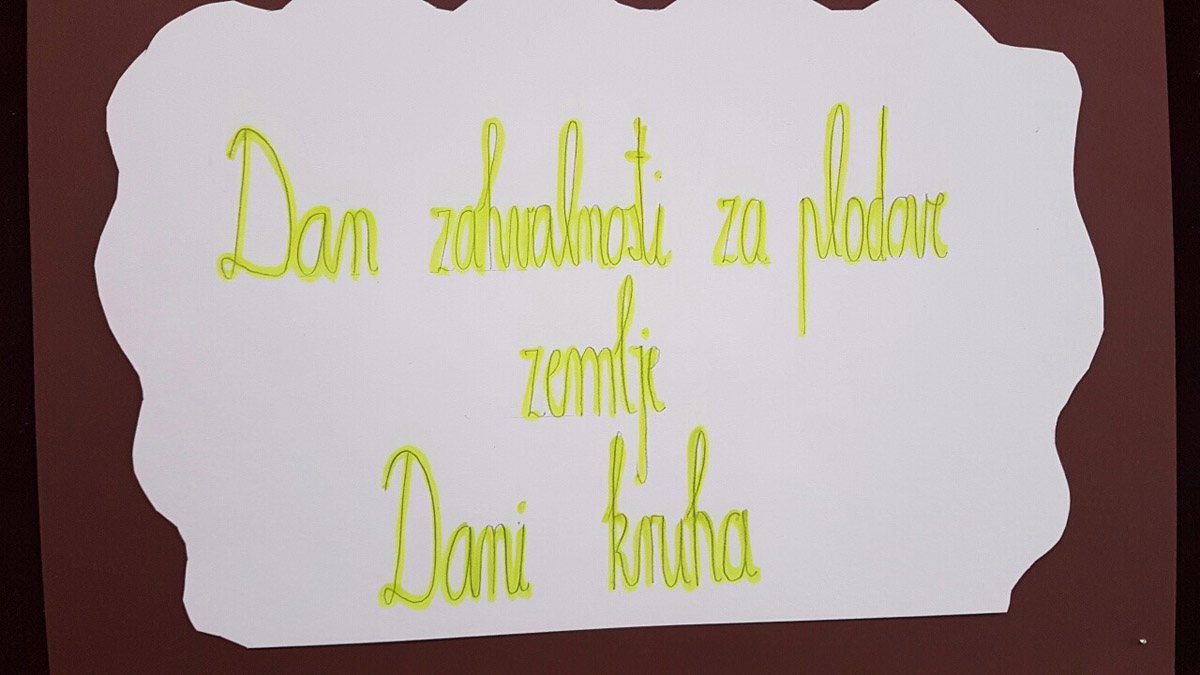 Dan zahvalnosti za plodove
zemlje
Dani kruha